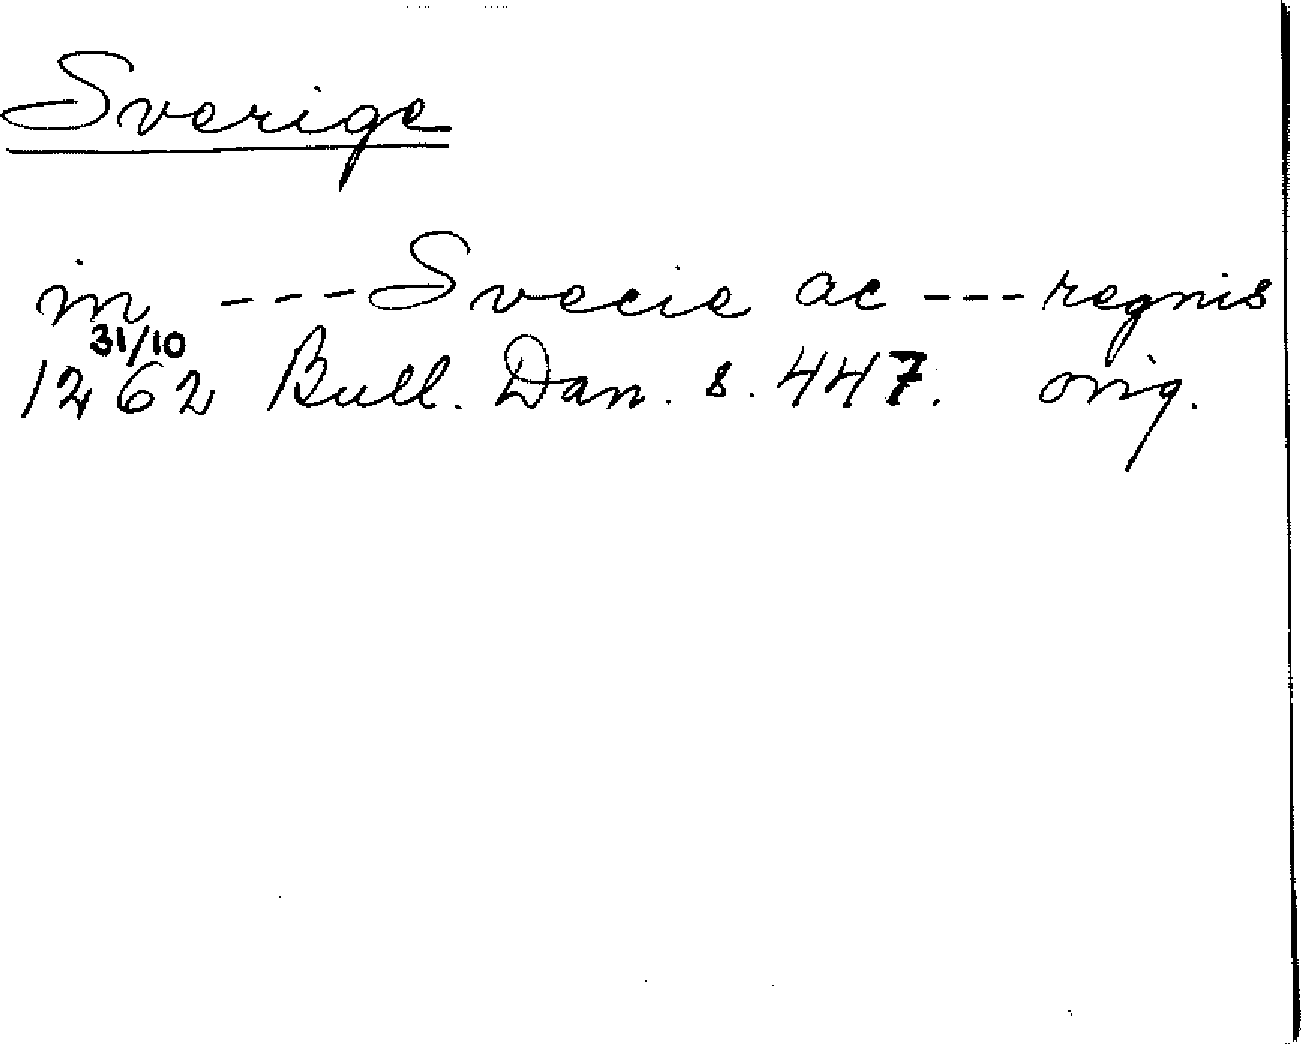 Sverige
in --- Svecie ac --- regnis
31/10
1262 Bull. Dan. s. 447. orig.